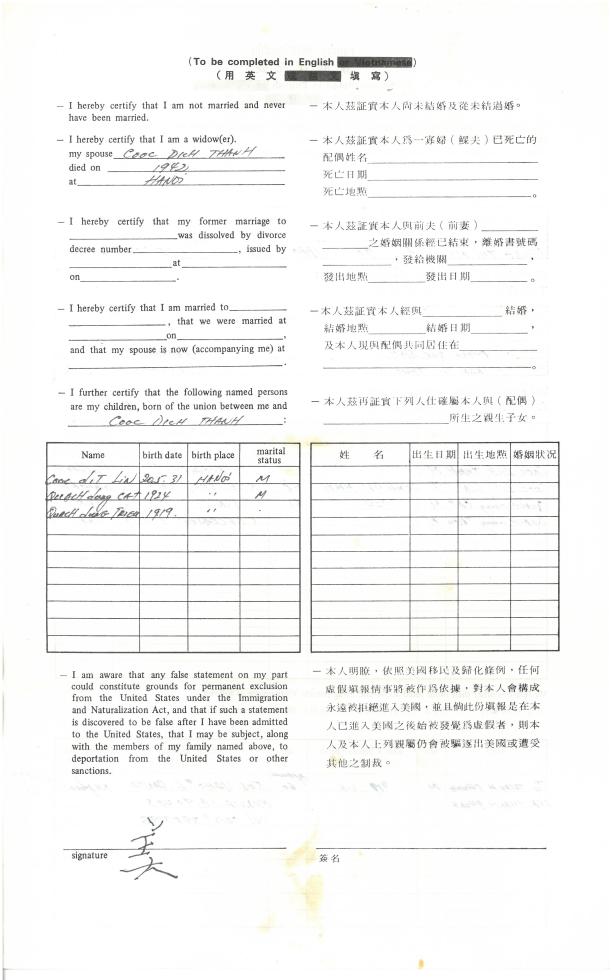 (To be completed in English or Vietnamese)
(用英文 填寫)
— I hereby certify that I am not married and never
have been married.
— I hereby certify that I am a widow(er).
my spouse COOC DICH THANH
died on 1942
at HANOI
— I hereby certify that my former marriage to
was dissolved by divorce
decree number , issued by
at
on .
— I hereby certify that I am married to
, that we were married at
on ,
and that my spouse is now (accompanying me) at
.
— I further certify that the following named persons
are my children, born of the union between me and
COOC DICH THANH :
Name birth date birth place marital status
COOC LIT LIN 20.5.31 HANOI M
QUACH CAT 1924 " M
QUACH 1919. " .
— I am aware that any false statement on my part
could constitute grounds for permanent exclusion
from the United States under the Immigration
and Naturalization Act, and that if such a statement
is discovered to be false after I have been admitted
to the United States, that I may be subject, along
with the members of my family named above, to
deportation from the United States or other
sanctions.
signature
— 本人茲証實本人尚未結婚及從未結過婚。
— 本人茲証實本人爲一寡婦(鰥夫)已死亡的
配偶姓名
死亡日期
死亡地點 。
— 本人茲証實本人與前夫(前妻)
之婚姻關係經已結束,離婚書號碼
,發給機關 ,
發出地點 發出日期 。
— 本人茲証實本人經與 結婚,
結婚地點 結婚日期 ,
及本人現與配偶共同居住在
。
— 本人茲再証實下列人仕確屬本人與(配偶)
所生之親生子女。
姓 名 出生日期 出生地點 婚姻狀况
— 本人明瞭,依照美國移民及歸化條例,任何
虛假填報情事將被作爲依據,對本人會構成
永遠被拒絕進入美國,並且倘此份填報是在本
人已進入美國之後始被發覺爲虛假者,則本
人及本人上列親屬仍會被驅逐出美國或遭受
其他之制裁。
簽名